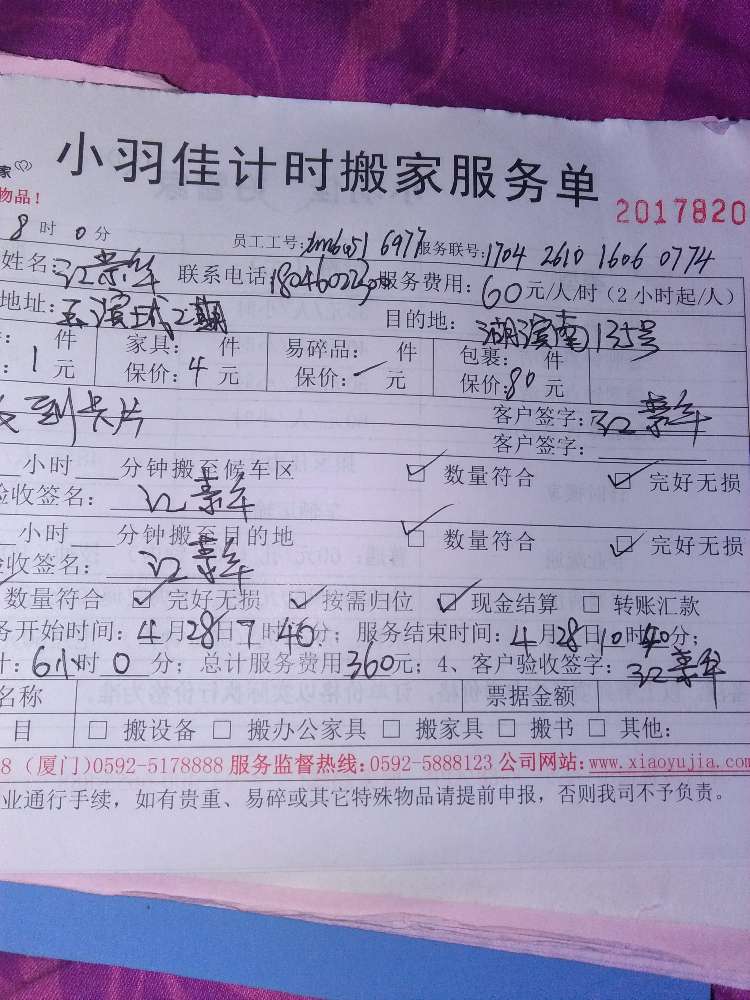 家
小羽佳计时搬家服务单
物品！
2017820
8时0分 员工工号： 6977 服务联号：1704 2610 1606 0774
姓名：江 联系电话：服务费用：60元/人/时（2小时起/人）
地址： 目的地：湖滨南135号
件 家具： 件 易碎品： 件 包裹： 件
：1元 保价：4元 保价：一元 保价：80元
到卡片 客户签字：江
客户签字：
小时 分钟搬至候车区 ☑ 数量符合 ☑ 完好无损
验收签名：江
小时 分钟搬至目的地 ☑ 数量符合 ☑ 完好无损
收签名：江
数量符合 ☑ 完好无损 ☑ 按需归位 ☑ 现金结算 □ 转账汇款
务开始时间：4月28日7时40分；服务结束时间：4月28 10时40分；
计：6小时0分；总计服务费用360元；4、客户验收签字：江
名称 票据金额
目 □ 搬设备 □ 搬办公家具 □ 搬家具 □ 搬书 □ 其他：
8（厦门）0592-5178888 服务监督热线：0592-5888123 公司网站：www.xiaoyujia.com
业通行手续，如有贵重、易碎或其它特殊物品请提前申报，否则我司不予负责。